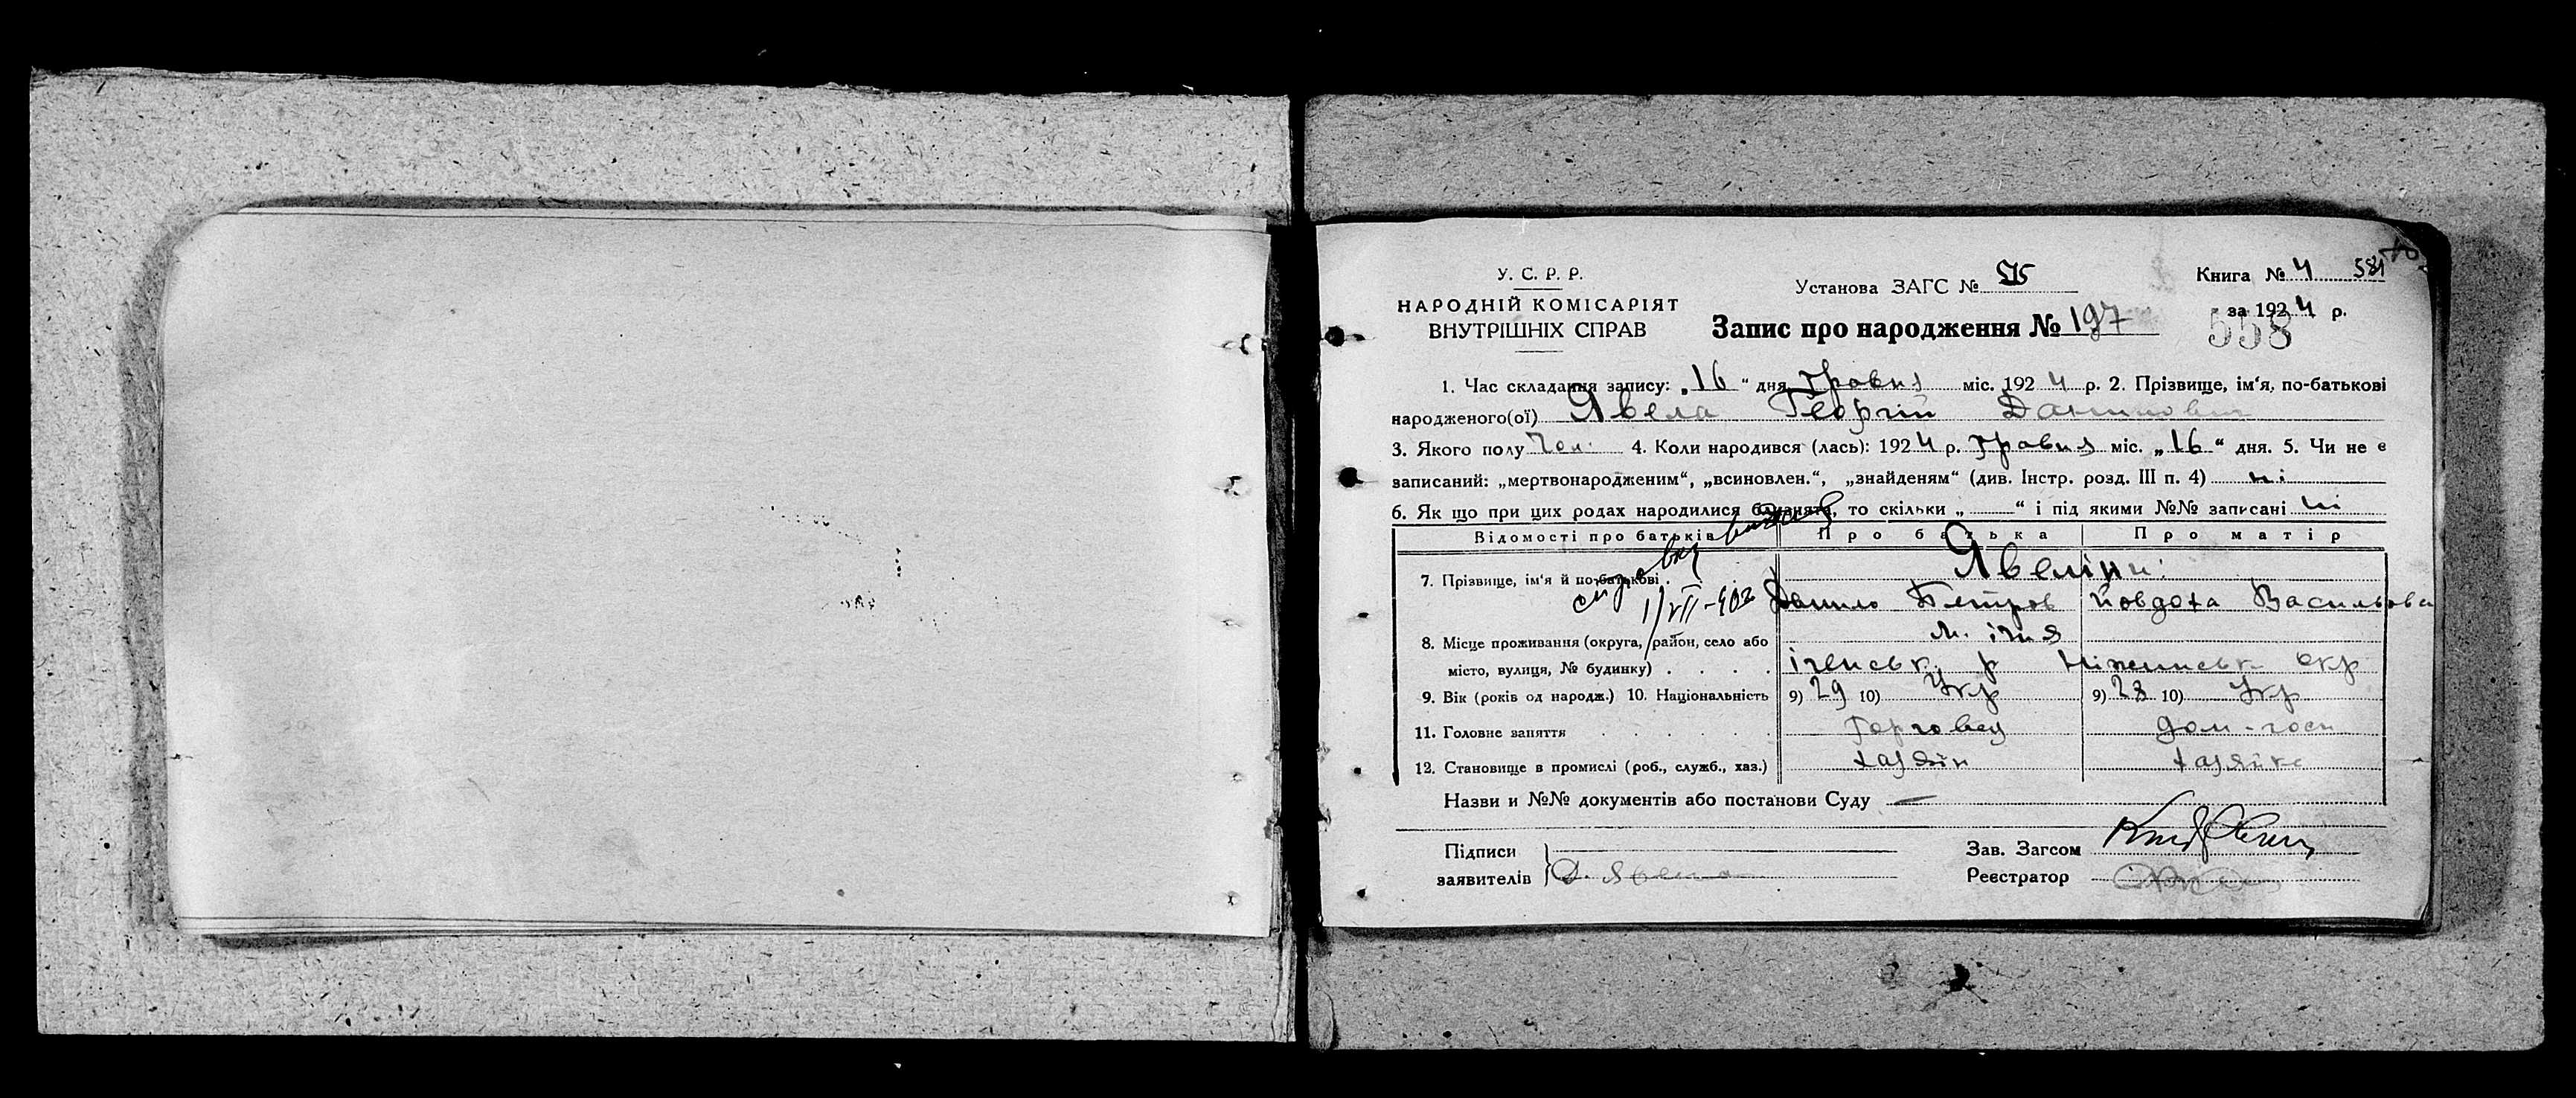 У. С. Р. Р.
НАРОДНІЙ КОМІСАРІЯТ
ВНУТРІШНІХ СПРАВ
Установа ЗАГС №
Запис про народження № 197
Книга № 4 581
за 1924 р.
558
1. Час складання запису: „16“ дня травня міс. 1924 р. 2. Прізвище, ім‘я, по-батькові
народженого(ої) Явела Георгій Данилович
3. Якого полу чол. 4. Коли народився (лась): 1924 р. травня міс. „16“ дня. 5. Чи не є
записаний: „мертвонародженим“, „всиновлен.“, „знайденям“ (див. Інстр. розд. III п. 4) ні
6. Як що при цих родах народилися близнята, то скільки „ “ і під якими №№ записані ні
Відомості про батьків Про батька Про матір
7. Прізвище, ім‘я й по-батькові . Явеліни
Данило Петров Йовдоха Васильова
8. Місце проживання (округа, район, село або м. ічня
місто, вулиця, № будинку) . . . . іченськ. р Ніженськ окр
9. Вік (років од народж.) 10. Національність 9) 29 10) Укр 9) 28 10) Укр
11. Головне заняття . . . . . . Торговец дом-госп
12. Становище в промислі (роб., служб., хаз.) хазяїн хазяйка
Назви и №№ документів або постанови Суду —
Підписи
заявителів Д. Явела
Зав. Загсом
Реєстратор